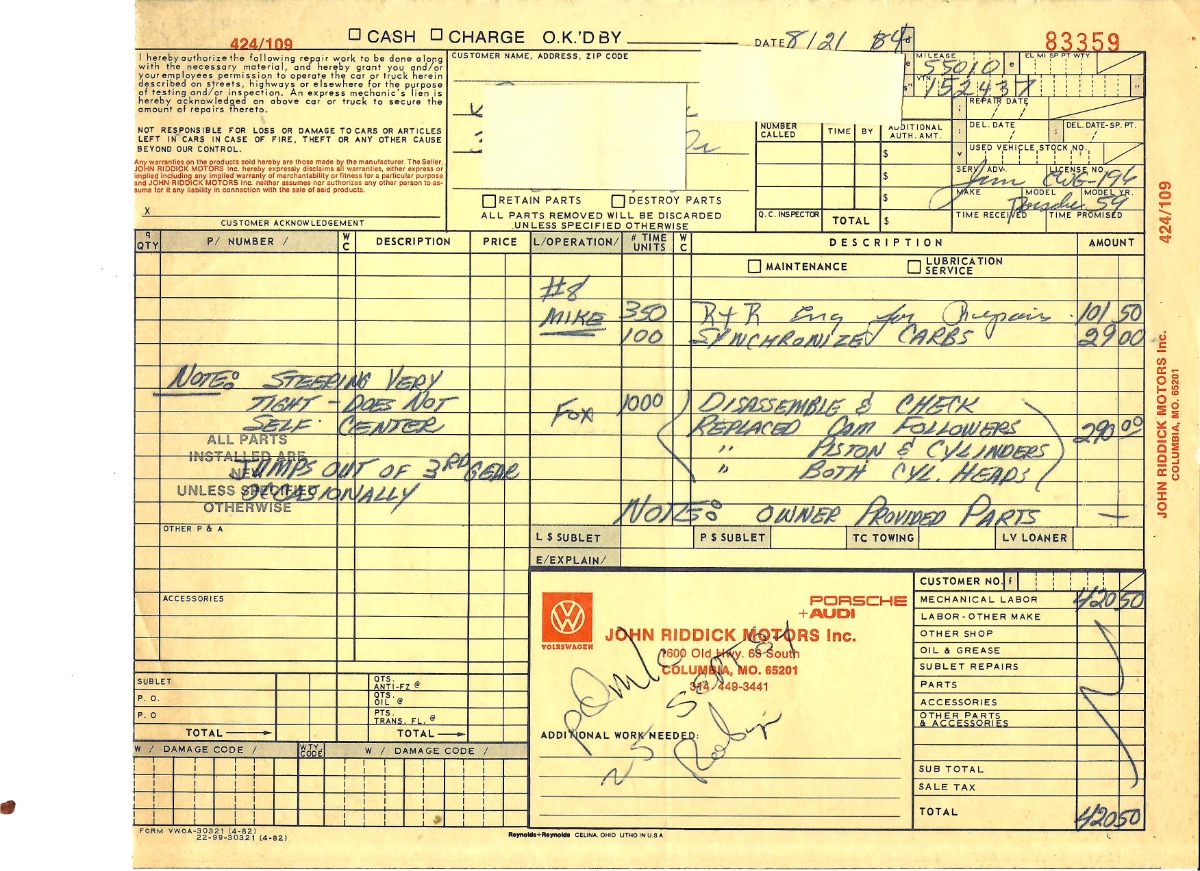 424/109
☐ CASH ☐ CHARGE O.K.'D BY
DATE 8/21 84
83359
I hereby authorize the following repair work to be done along
with the necessary material, and hereby grant you and/or
your employees permission to operate the car or truck herein
described on streets, highways or elsewhere for the purpose
of testing and/or inspection. An express mechanic's lien is
hereby acknowledged on above car or truck to secure the
amount of repairs thereto.
NOT RESPONSIBLE FOR LOSS OR DAMAGE TO CARS OR ARTICLES
LEFT IN CARS IN CASE OF FIRE, THEFT OR ANY OTHER CAUSE
BEYOND OUR CONTROL.
Any warranties on the products sold hereby are those made by the manufacturer. The Seller,
JOHN RIDDICK MOTORS Inc. hereby expressly disclaims all warranties, either express or
implied including any implied warranty of merchantability or fitness for a particular purpose
and JOHN RIDDICK MOTORS Inc. neither assumes nor authorizes any other person to as-
sume for it any liability in connection with the sale of said products.
X
CUSTOMER ACKNOWLEDGEMENT
CUSTOMER NAME, ADDRESS, ZIP CODE
☐ RETAIN PARTS ☐ DESTROY PARTS
ALL PARTS REMOVED WILL BE DISCARDED
UNLESS SPECIFIED OTHERWISE
NUMBER CALLED TIME BY ADDITIONAL AUTH. AMT.
$
$
$
Q.C. INSPECTOR TOTAL $
MILEAGE 55010
EL MI SP PT WTY
152437
REPAIR DATE
DEL. DATE DEL. DATE-SP. PT.
USED VEHICLE STOCK NO.
SERV. ADV. Jim LICENSE NO. CWG-196
MAKE Porsche MODEL MODEL YR. 59
TIME RECEIVED TIME PROMISED
QTY P/ NUMBER / WC DESCRIPTION PRICE L/OPERATION/ # TIME UNITS WC DESCRIPTION AMOUNT
☐ MAINTENANCE ☐ LUBRICATION SERVICE
#8
MIKE 350 R+R Eng for Repair 101 50
100 SYNCHRONIZE CARBS 29 00
NOTE: STEERING VERY
TIGHT - DOES NOT
SELF CENTER
JUMPS OUT OF 3RD GEAR
OCCASIONALLY
ALL PARTS
INSTALLED ARE
NEW
UNLESS SPECIFIED
OTHERWISE
Fox 1000 DISASSEMBLE & CHECK
REPLACED CAM FOLLOWERS 290 00
" PISTON & CYLINDERS
" BOTH CYL. HEADS
NOTE: OWNER PROVIDED PARTS —
OTHER P & A
L $ SUBLET P $ SUBLET TC TOWING LV LOANER
E/EXPLAIN/
ACCESSORIES
SUBLET
P. O.
P. O
TOTAL
QTS. ANTI-FZ @
QTS. OIL @
PTS. TRANS. FL. @
TOTAL
W / DAMAGE CODE / WTY. CODE W / DAMAGE CODE /
VOLKSWAGEN
PORSCHE
+AUDI
JOHN RIDDICK MOTORS Inc.
7600 Old Hwy. 63 South
COLUMBIA, MO. 65201
314/449-3441
ADDITIONAL WORK NEEDED:
25 SEPT 84
CUSTOMER NO.
MECHANICAL LABOR 420 50
LABOR-OTHER MAKE
OTHER SHOP
OIL & GREASE
SUBLET REPAIRS
PARTS
ACCESSORIES
OTHER PARTS & ACCESSORIES
SUB TOTAL
SALE TAX
TOTAL 420 50
FORM VWOA-30321 (4-82)
22-99-30321 (4-82)
Reynolds+Reynolds CELINA, OHIO LITHO IN U.S.A.
424/109
JOHN RIDDICK MOTORS Inc.
COLUMBIA, MO. 65201